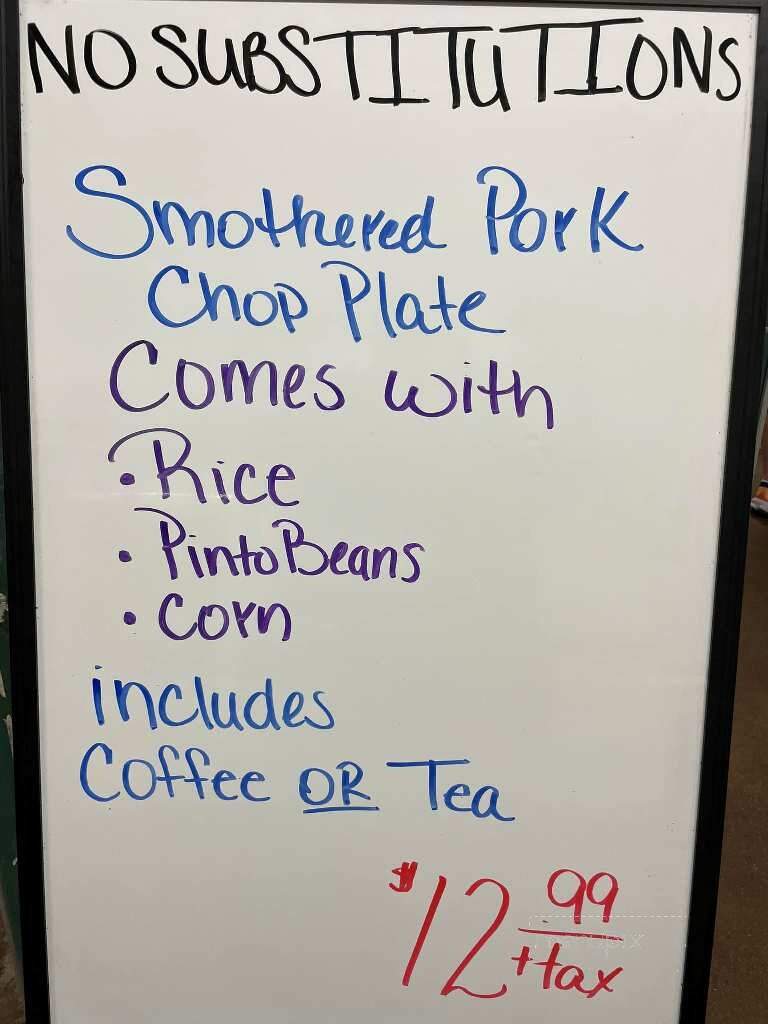 NO SUBSTITUTIONS
Smothered Pork
Chop Plate
Comes with
• Rice
• Pinto Beans
• Corn
includes
Coffee OR Tea
$12 99
+tax
menupix